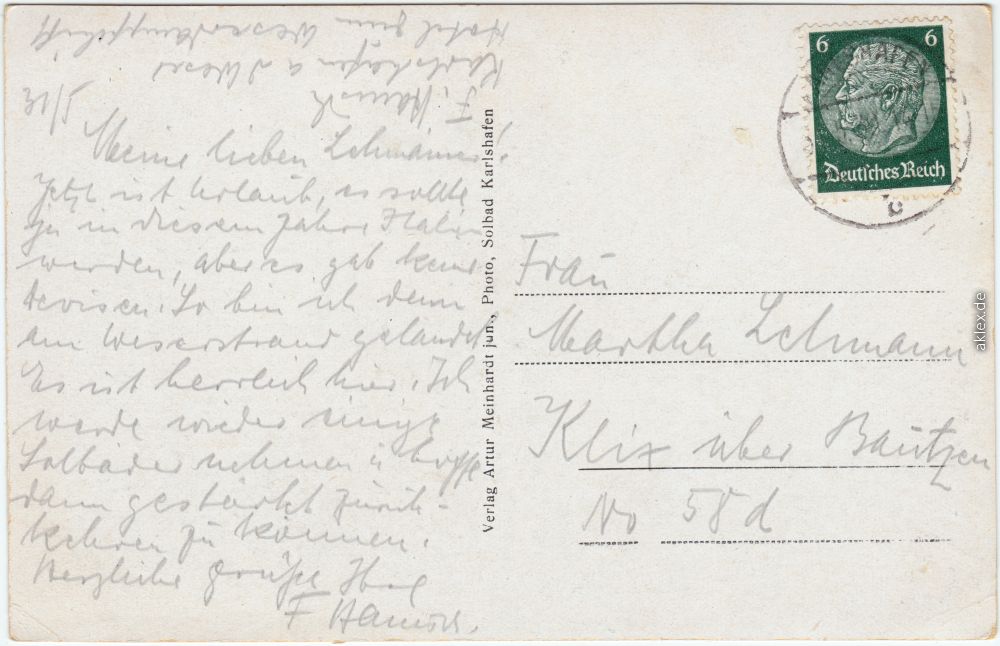 Hotel zum Weserdampfschiff
Karlshafen a d Weser
F.
Meine lieben Lehmänner!
Jetzt ist Urlaub, es sollte
ja in diesem Jahre Italien
werden, aber es gab keine
Devisen. So bin ich denn
am Weserstrand gelandet.
Es ist herrlich hier. Ich
werde wieder einige
Solbäder nehmen u hoffe
dann gestärkt zurück-
kehren zu können.
Herzliche Grüße Ihre
F
Verlag Artur Meinhardt jun., Photo, Solbad Karlshafen
6 6
Deutsches Reich
b
Frau
Martha Lehmann
Klix über Bautzen
No 58 d
aklex.de